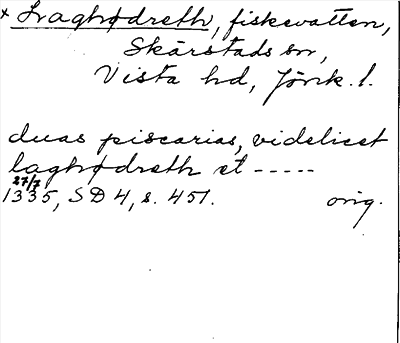 x Laghødreth, fiskevatten,
Skärstads sn,
Vista hd, Jönk. l.
duas piscarias, videlicet
laghødreth et -----
27/7
1335, SD 4, s. 451. orig.